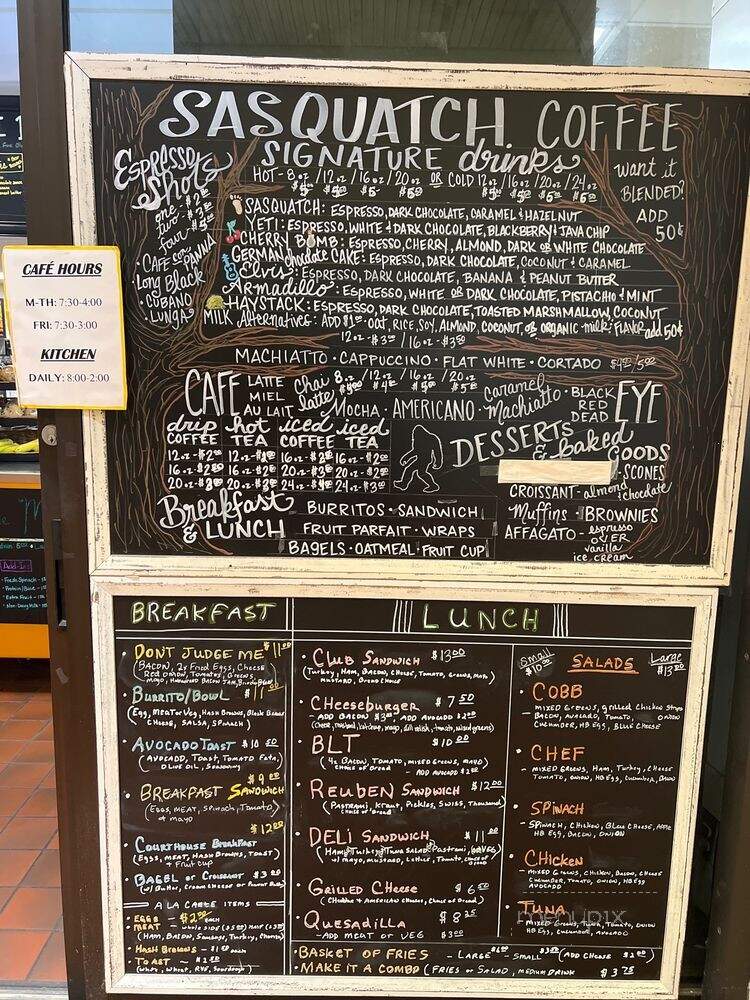 SASQUATCH COFFEE
SIGNATURE drinks
HOT-8oz /12oz /16oz /20oz OR COLD 12oz /16oz /20oz /24oz
want it
BLENDED?
ADD
50¢
Espresso
Shots
one
two
four
CAFE con PANNA
Long Black
CUBANO
LUNGA
SASQUATCH: ESPRESSO, DARK CHOCOLATE, CARAMEL & HAZELNUT
YETI: ESPRESSO, WHITE & DARK CHOCOLATE, BLACKBERRY & JAVA CHIP
CHERRY BOMB: ESPRESSO, CHERRY, ALMOND, DARK OR WHITE CHOCOLATE
GERMAN chocolate CAKE: ESPRESSO, DARK CHOCOLATE, COCONUT & CARAMEL
Elvis: ESPRESSO, DARK CHOCOLATE, BANANA & PEANUT BUTTER
Armadillo: ESPRESSO, WHITE OR DARK CHOCOLATE, PISTACHIO & MINT
HAYSTACK: ESPRESSO, DARK CHOCOLATE, TOASTED MARSHMALLOW, COCONUT
MILK Alternatives: ADD $1.00 OAT, RICE, SOY, ALMOND, COCONUT, OR ORGANIC milk: FLAVOR add 50¢
12oz / 16oz
MACHIATTO · CAPPUCCINO · FLAT WHITE · CORTADO
CAFE LATTE
MIEL
AU LAIT
chai
latte
8oz / 12oz / 16oz / 20oz
MOCHA · AMERICANO · caramel
Machiatto · BLACK
RED
DEAD
EYE
drip COFFEE
hot TEA
iced COFFEE
iced TEA
12oz 12oz 16oz 16oz
16oz 16oz 20oz 20oz
20oz 20oz 24oz 24oz
DESSERTS
& baked
GOODS
SCONES
CROISSANT - almond
& chocolate
Muffins · BROWNIES
AFFAGATO - espresso
OVER
vanilla
ice cream
Breakfast
& LUNCH
BURRITOS · SANDWICH
FRUIT PARFAIT · WRAPS
BAGELS · OATMEAL · FRUIT CUP
CAFÉ HOURS
M-TH: 7:30-4:00
FRI: 7:30-3:00
KITCHEN
DAILY: 8:00-2:00
Add-Ins
BREAKFAST
· DONT JUDGE ME $11.00
(BACON, 2x Fried Eggs, Cheese
Red Onion, Tomatoes, Greens
· BURRITO/BOWL
(Egg, Meat or Veg, Hash Browns, Black Beans
Cheese, Salsa, Spinach)
· AVOCADO TOAST $10.50
(Avocado, Toast, Tomato
Olive Oil, Seasoning
$9.00
· BREAKFAST SANDWICH
(Eggs, Meat, Spinach, Tomato,
& mayo
$12.00
· COURTHOUSE BREAKFAST
(Eggs, Meat, Hash Browns, Toast)
+ Fruit cup
· BAGEL or Croissant
(w/ Butter, Cream Cheese or Peanut Butter)
A LA CARTE ITEMS
- EGGS $2.00 each
- MEAT
(Ham, Bacon, Sausage, Turkey, Chorizo)
- HASH BROWNS
- TOAST
(White, Wheat, RYE, Sourdough)
LUNCH
· CLUB SANDWICH $13.00
(Turkey, Ham, Bacon, Cheese, Tomato, Greens, Mayo
Mustard, Bread Choice
· CHEESEBURGER $7.50
- ADD BACON $3.00, ADD AVOCADO $2.00
· BLT $10.00
(4x Bacon, Tomato, mixed greens, mayo)
choice of bread
- ADD AVOCADO $2.00
· REUBEN SANDWICH $12.00
(Pastrami, Kraut, Pickles, Swiss, Thousand)
choice of bread
· DELI SANDWICH $11.00
w/ mayo, mustard, Lettuce, Tomato, choice of
bread
· GRILLED CHEESE $6.50
(Cheddar & American Cheese, choice of bread)
· QUESADILLA $8.25
- ADD MEAT or VEG $3.00
Small
$10.00
SALADS
Large
$13.00
· COBB
- MIXED GREENS, grilled Chicken Strips
- BACON, AVOCADO, TOMATO, ONION
CUCUMBER, HB EGG, BLUE CHEESE
· CHEF
- MIXED GREENS, HAM, Turkey, CHEESE
TOMATO, ONION, HB EGG, Cucumber, Bacon
· SPINACH
- SPINACH, CHICKEN, BLUE CHEESE, APPLE
HB EGG, BACON, ONION
· CHICKEN
- MIXED GREENS, CHICKEN, BACON, CHEESE
CUCUMBER, TOMATO, ONION, HB EGG
AVOCADO
· TUNA
- MIXED GREENS, TUNA, TOMATO, ONION
HB EGG, CUCUMBER, AVOCADO
menupix
· BASKET OF FRIES - LARGE - SMALL (ADD CHEESE $2.00)
· MAKE IT A COMBO (FRIES or SALAD, MEDIUM DRINK $3.75